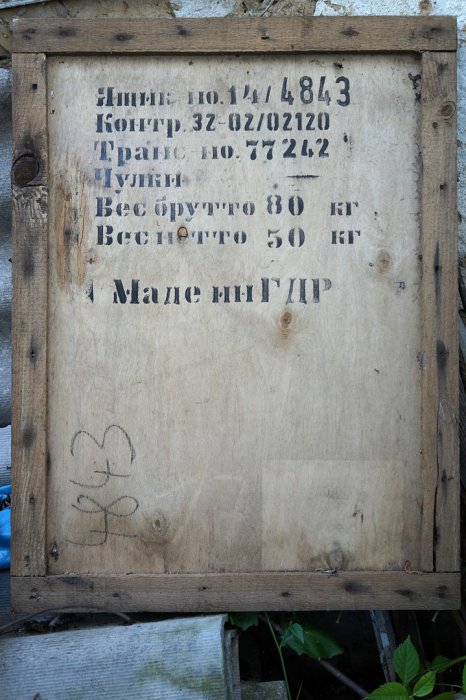 Ящик но.14/4843
Контр.32-02/02120
Транс но.77242
Чулки —
Вес брутто 80 кг
Вес нетто 50 кг
Маде ин ГДР
4843